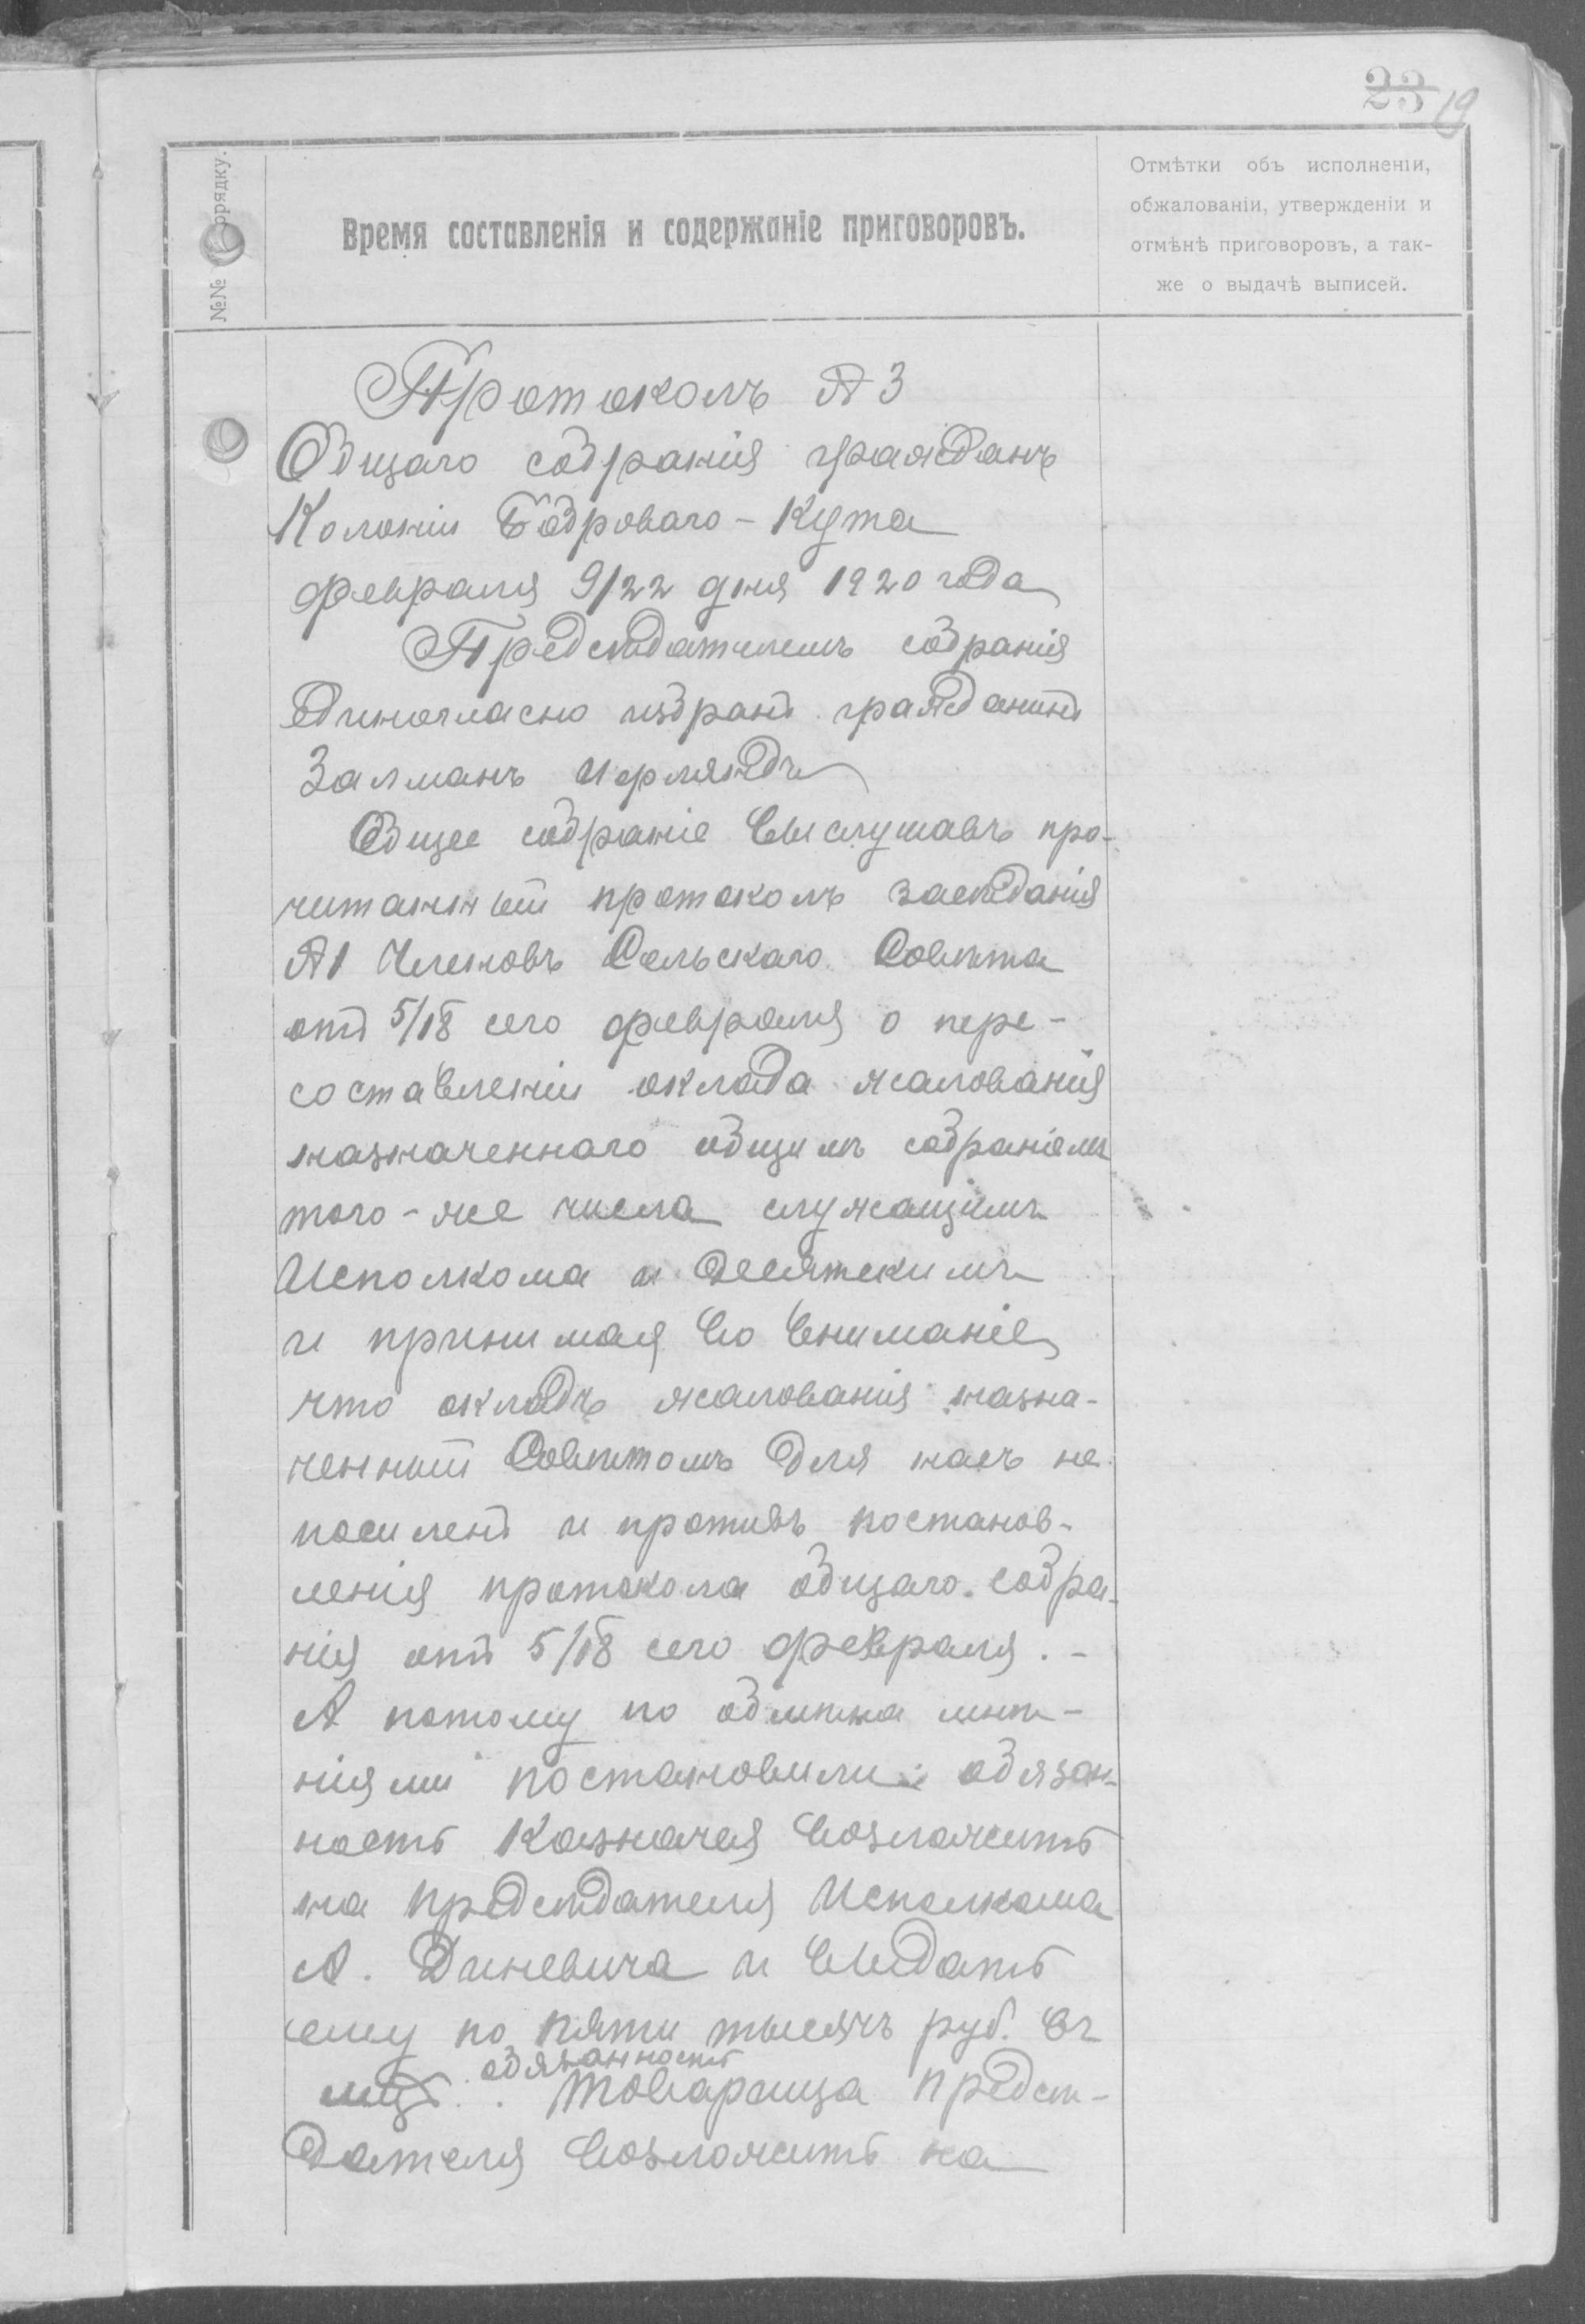 23 19
№№ порядку.
Время составленія и содержаніе приговоровъ.
Отмѣтки объ исполненіи,
обжалованіи, утвержденіи и
отмѣнѣ приговоровъ, а так-
же о выдачѣ выписей.
Протоколъ № 3
Общаго собранія гражданъ
Колоніи Боброваго-Кута
февраля 9/22 дня 1920 года
Предсѣдателемъ собранія
единогласно избранъ гражданинъ
Залманъ Ифляндъ
Общее собраніе выслушавъ про-
читанный протоколъ засѣданія
№ 1 Членовъ Сельскаго Совѣта
отъ 5/18 сего февраля о пере-
составленіи оклада жалованія
назначеннаго общимъ собраніемъ
того-же числа служащимъ
Исполкома и десятскимъ
и принимая во вниманіе
что окладъ жалованія назна-
ченный Совѣтомъ для насъ не
посиленъ и противъ постанов-
ленія протокола общаго собра-
нія отъ 5/18 сего февраля. -
А потому по обмѣна мнѣ-
ніями постановили: обязан-
ность Казначея возложить
на предсѣдателя Исполкома
А. Диневича и выдать
ему по пяти тысячъ руб. въ
мцъ. обязанность Товарища предсѣ-
дателя возложить на